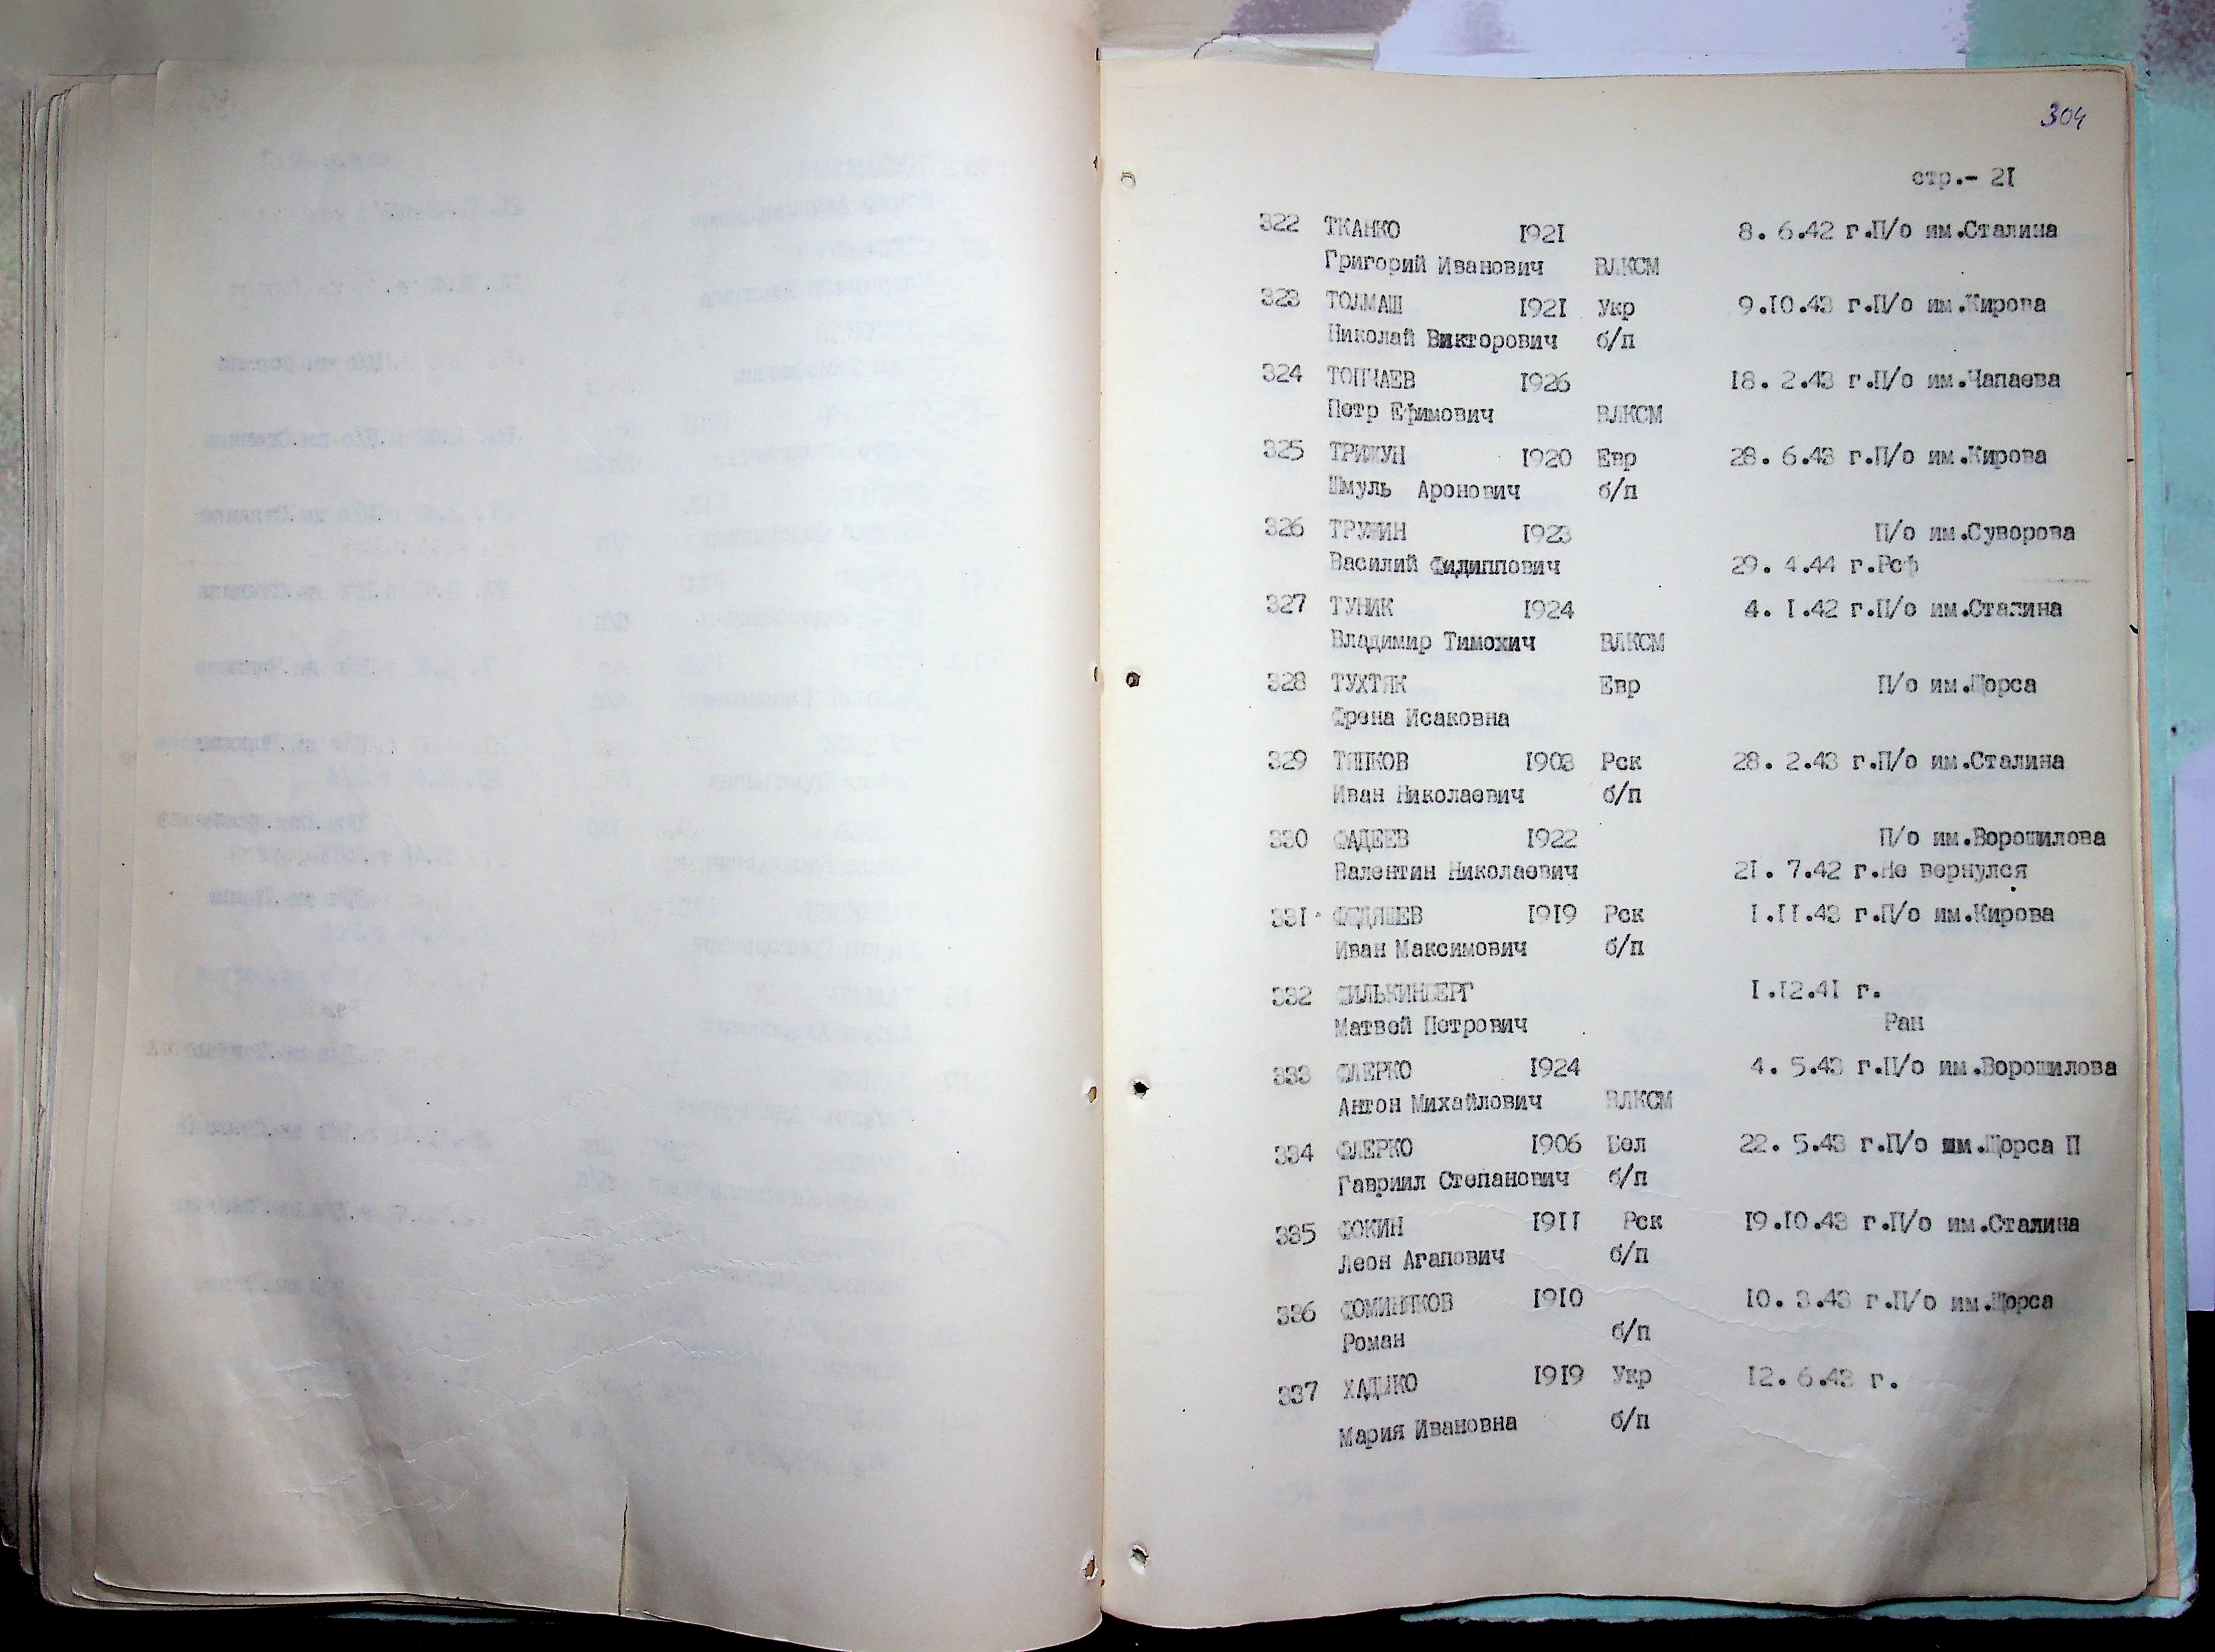 304
стр.- 21
322 ТКАНКО 1921 8. 6.42 г.П/о им.Сталина
Григорий Иванович ВЛКСМ
323 ТОЛМАШ 1921 Укр 9.10.43 г.П/о им.Кирова
Николай Викторович б/п
324 ТОПЧАЕВ 1926 18. 2.43 г.П/о им.Чапаева
Петр Ефимович ВЛКСМ
325 ТРИЖУН 1920 Евр 28. 6.43 г.П/о им.Кирова
Шмуль Аронович б/п
326 ТРУНИН 1923 П/о им.Суворова
Василий Филиппович 29. 4.44 г.Рсф
327 ТУНИК 1924 4. 1.42 г.П/о им.Сталина
Владимир Тимохич ВЛКСМ
328 ТУХТЯК Евр П/о им.Щорса
Френа Исаковна
329 ТЯПКОВ 1903 Рск 28. 2.43 г.П/о им.Сталина
Иван Николаевич б/п
330 ФАДЕЕВ 1922 П/о им.Ворошилова
Валентин Николаевич 21. 7.42 г.Не вернулся
331 ФЕДЯШЕВ 1919 Рск 1.11.43 г.П/о им.Кирова
Иван Максимович б/п
332 ФИЛЬКИНБЕРГ 1.12.41 г.
Матвей Петрович Ран
333 ФЛЕРКО 1924 4. 5.43 г.П/о им.Ворошилова
Антон Михайлович ВЛКСМ
334 ФЛЕРКО 1906 Бел 22. 5.43 г.П/о им.Щорса П
Гавриил Степанович б/п
335 ФОКИН 1911 Рск 19.10.43 г.П/о им.Сталина
Леон Агапович б/п
336 ФОМИНЯКОВ 1910 10. 3.43 г.П/о им.Щорса
Роман б/п
337 ХАДЫКО 1919 Укр 12. 6.43 г.
Мария Ивановна б/п